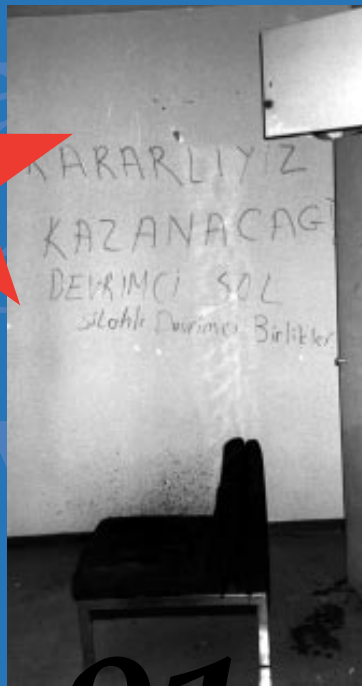 KARARLIYIZ
KAZANACAĞI
DEVRİMCİ SOL
Silahlı Devrimci Birlikler
91